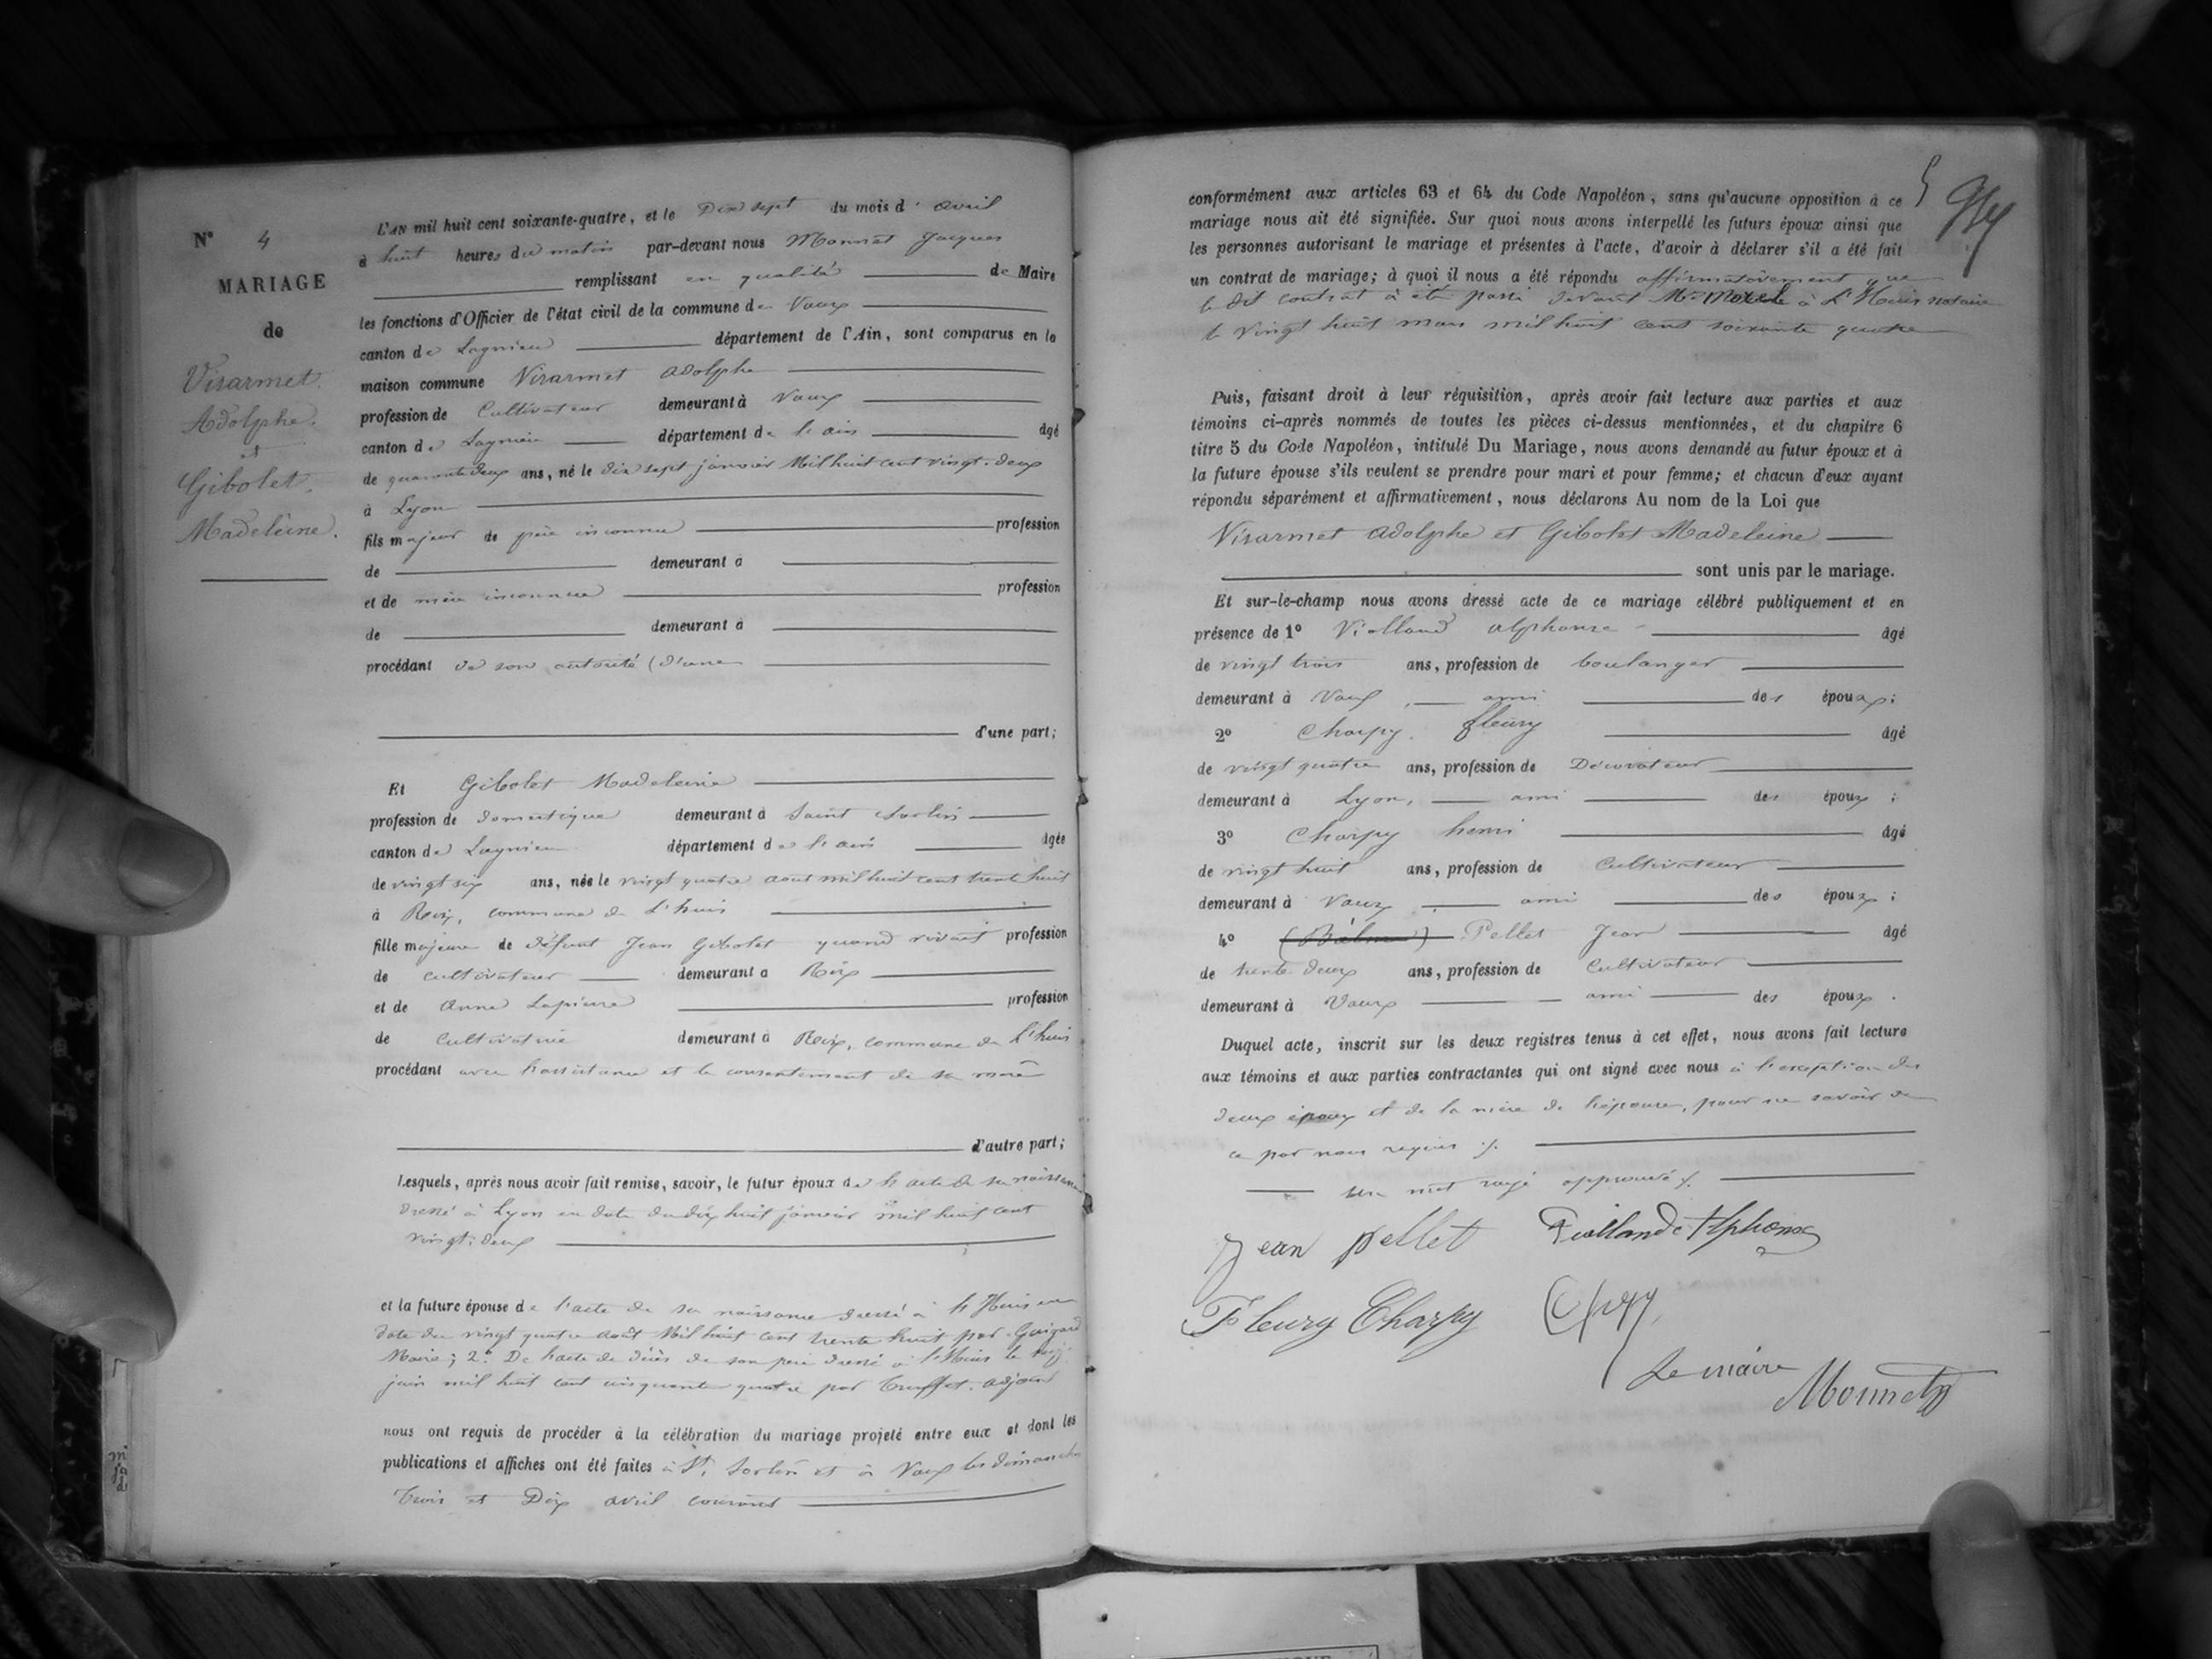 N° 4
MARIAGE
de
Visarmet
Adolphe.
et
Gibolet
Madeleine.
L'AN mil huit cent soixante-quatre, et le Dix sept du mois d' avril
à huit heures du matin par-devant nous Monnet Jacques
remplissant en qualité de Maire
les fonctions d'Officier de l'état civil de la commune de Vaux
canton de Lagnieu département de l'Ain, sont comparus en la
maison commune Visarmet Adolphe
profession de Cultivateur demeurant à Vaux
canton de Lagnieu département de l'ain âgé
de quarante deux ans, né le dix sept janvier Mil huit cent vingt-deux
à Lyon
fils majeur de père inconnu profession
de demeurant à
et de mère inconnue profession
de demeurant à
procédant de son autorité (d'une
d'une part;
Et Gibolet Madeleine
profession de domestique demeurant à Saint Sorlin
canton de Lagnieu département de l'ain âgée
de vingt six ans, née le vingt quatre aout mil huit cent trente huit
à Reix, commune de L'huis
fille majeure de défunt Jean Gibolet quand vivait profession
de cultivateur demeurant à Reix
et de Anne Lapierre profession
de Cultivatrice demeurant à Reix, commune de L'huis
procédant avec l'assistance et le consentement de sa mère
d'autre part;
Lesquels, après nous avoir fait remise, savoir, le futur époux de l'acte de sa naissance
dressé à Lyon en date du dix huit janvier mil huit cent
vingt-deux
et la future épouse de l'acte de sa naissance dressé à l'Huis en
date du vingt quatre août Mil huit cent trente huit par Guigard
Maire; 2° De l'acte de décès de son père dressé à l'Huis le
juin mil huit cent cinquante quatre par Truffet. adjoint
nous ont requis de procéder à la célébration du mariage projeté entre eux et dont les
publications et affiches ont été faites à St. Sorlin et à Vaux les dimanches
Trois et Dix avril courant
conformément aux articles 63 et 64 du Code Napoléon, sans qu'aucune opposition à ce
mariage nous ait été signifiée. Sur quoi nous avons interpellé les futurs époux ainsi que
les personnes autorisant le mariage et présentes à l'acte, d'avoir à déclarer s'il a été fait
un contrat de mariage; à quoi il nous a été répondu affirmativement que
le dit contrat à été passé devant Me à L'Huis notaire
le vingt huit mars mil huit cent soixante quatre
Puis, faisant droit à leur réquisition, après avoir fait lecture aux parties et aux
témoins ci-après nommés de toutes les pièces ci-dessus mentionnées, et du chapitre 6
titre 5 du Code Napoléon, intitulé Du Mariage, nous avons demandé au futur époux et à
la future épouse s'ils veulent se prendre pour mari et pour femme; et chacun d'eux ayant
répondu séparément et affirmativement, nous déclarons Au nom de la Loi que
Visarmet Adolphe et Gibolet Madeleine
sont unis par le mariage.
Et sur-le-champ nous avons dressé acte de ce mariage célébré publiquement et en
présence de 1° Violland alphonse âgé
de vingt trois ans, profession de boulanger
demeurant à Vaux ami des époux;
2° Charpy fleury âgé
de vingt quatre ans, profession de Décorateur
demeurant à Lyon, ami des époux;
3° Charpy henri âgé
de vingt huit ans, profession de Cultivateur
demeurant à Vaux ami des époux;
4° Pellet Jean âgé
de trente deux ans, profession de Cultivateur
demeurant à Vaux ami des époux.
Duquel acte, inscrit sur les deux registres tenus à cet effet, nous avons fait lecture
aux témoins et aux parties contractantes qui ont signé avec nous à l'exception des
deux époux et de la mère de l'épouse, pour ne savoir de
ce par nous requis ./.
un mot rayé approuvé ./.
Jean pellet Viollande Alphonse
Fleury Charpy
Le maire
Monnet